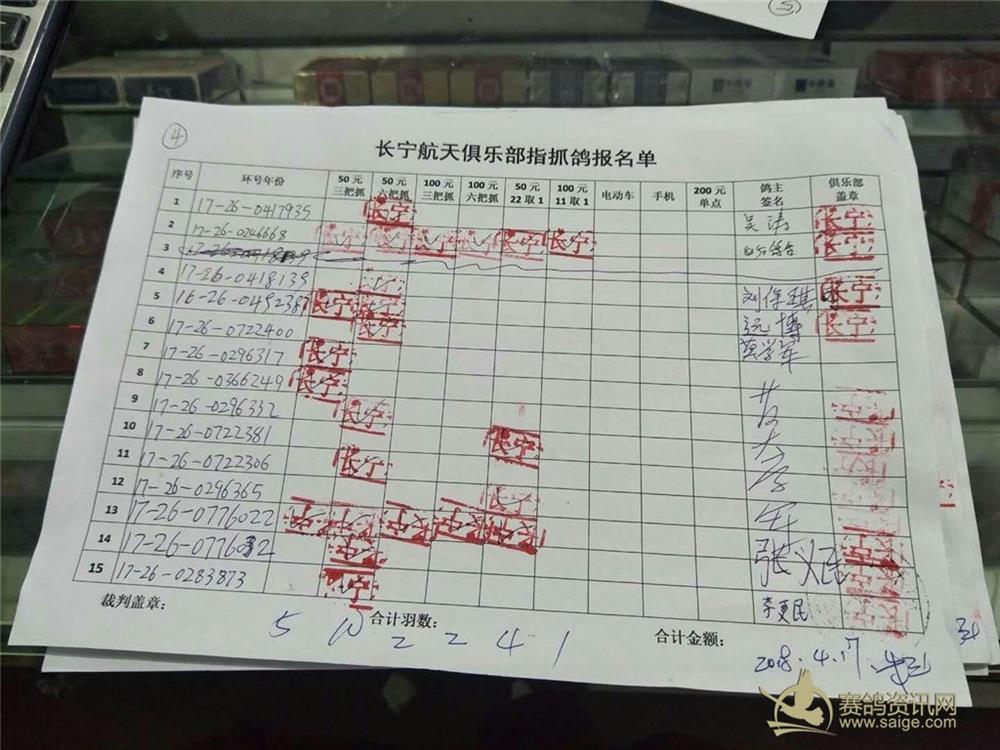 ④
长宁航天俱乐部指抓鸽报名单
序号 环号年份 50元三把抓 50元六把抓 100元三把抓 100元六把抓 50元22取1 100元11取1 电动车 手机 200元单点 鸽主签名 俱乐部盖章
1 17-26-0417935 长宁 吴涛 长宁
2 17-26-0246668 长宁 长宁 长宁 长宁 长宁 长宁 长宁
3
4 17-26-0418139 刘保琪 长宁
5 16-26-0492387 长宁 长宁 远博 长宁
6 17-26-0722400 长宁 黄学军
7 17-26-0296317 长宁
8 17-26-0366249 长宁
9 17-26-0296332 长宁
10 17-26-0722381 长宁
11 17-26-0722306 长宁
12 17-26-0296365 长宁
13 17-26-0776022 长宁 长宁 长宁 长宁 长宁
14 17-26-0776032 长宁
15 17-26-0283873 长宁 李更民
裁判盖章: 合计羽数: 合计金额:
5 10 2 2 4 1
2018.4.17
赛鸽资讯网
www.saige.com